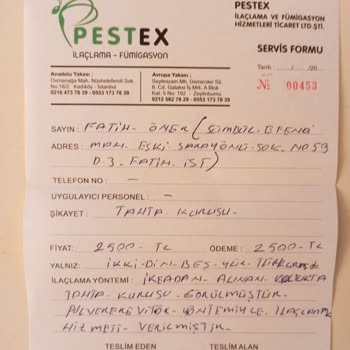 PESTEX
İLAÇLAMA - FÜMİGASYON
PESTEX
İLAÇLAMA VE FÜMİGASYON
HİZMETLERİ TİCARET LTD.ŞTİ.
SERVİS FORMU
Tarih ..../..../20
№ 00453
Anadolu Yakası :
Osmanağa Mah. Nüshetefendi Sok.
No:16/2 Kadıköy - İstanbul
0216 473 78 39 - 0553 173 78 39
Avrupa Yakası :
Seyitnizam Mh. Demirciler Sit.
8. Cd. Galaksi İş Mrk. A Blok
Kat: 5 No: 192 - Zeytinburnu
0212 582 78 29 - 0553 173 78 39
SAYIN : FATİH - ÖNER (SÜMBÜL - EFENDİ
ADRES : MAH. ESKİ SARAYÖNÜ - SOK. NO 59
D. 3. FATİH. İST)
TELEFON NO : —
UYGULAYICI PERSONEL : —
ŞİKAYET : TAHTA KURUSU -
FİYAT : 2500 - TL ÖDEME : 2500 - TL
YALNIZ : İKKİ - BİN BEŞ - YÜR TÜRK
İLAÇLAMA YÖNTEMİ : İKEADAN - ALINAN KOLTUKTA
TAHTA - KURUSU - GÖRÜLMÜŞTÜR -
YÖNTEMİYLE - İLAÇLAMA
HİZMETİ - VERİLMİŞTİR -
TESLİM EDEN TESLİM ALAN